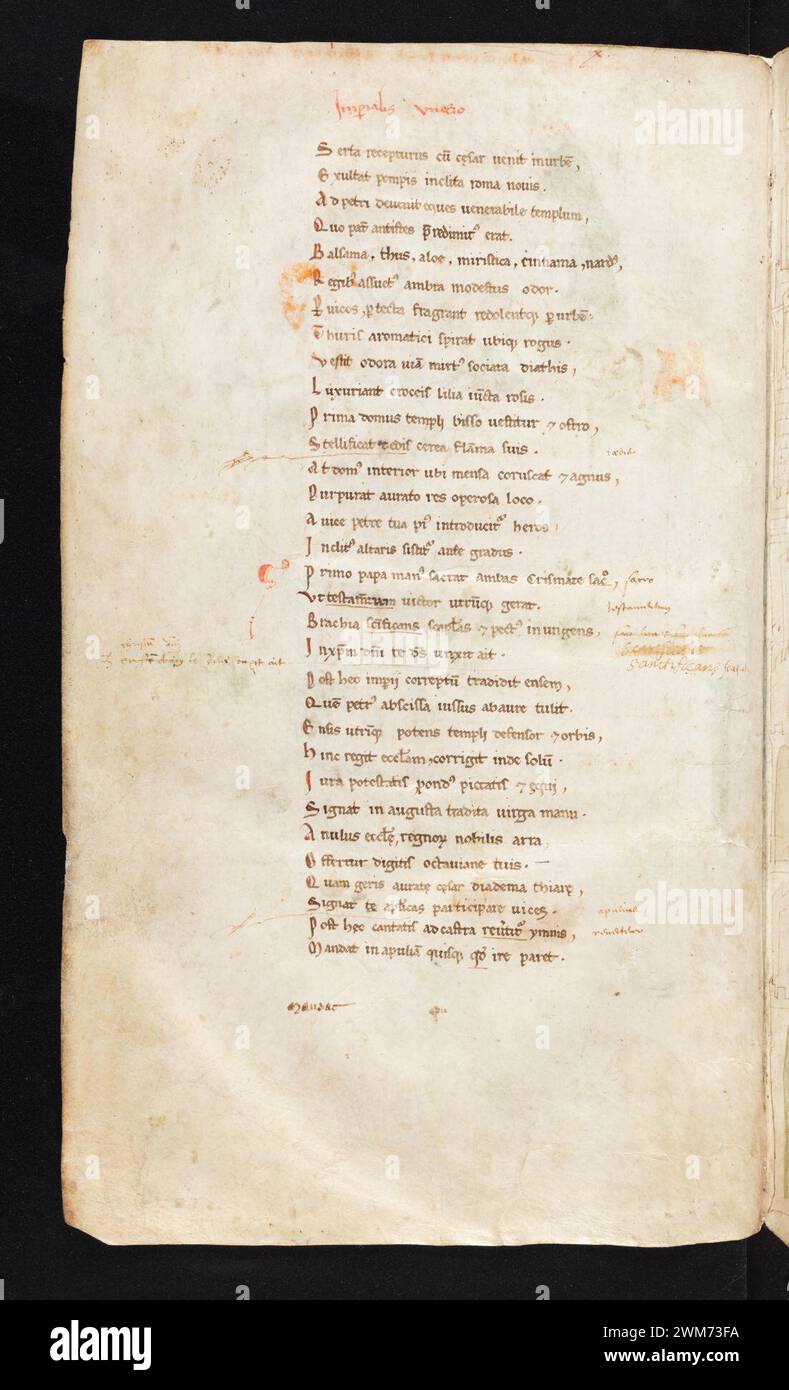 Imperialis Unctio
Serta recepturus cū cęsar venit inurbē,
Exultat pompis inclita roma novis.
Ad petri devenit eques venerabile templum,
Quo pat̄ antistes p̄redimitꝰ erat.
Balsama, thus, aloe, miristica, cinnama, nardꝰ,
Regibꝰ assuetꝰ ambra modestus odor.
Ꝑ vicos, ꝑ tecta fragrant redolentꝙ ꝑ urbē.
Thuris aromatici spirat ubiqꝫ rogus.
Vestit odora viā mirtꝰ sociata diathis,
Luxuriant croceis lilia iūcta rosis.
Prima domus templi bisso vestitur ⁊ ostro,
Stellificat tedis cerea flāma suis.
At domꝰ interior ubi mensa coruscat ⁊ agnus,
Purpurat aurato res operosa loco.
A vice petre tua piꝰ introducitᷣ heros,
Inclitꝰ altaris sistitᷣ ante gradus.
Primo papa manꝰ sacrat ambas crismate sac̄o,
sacro
Ut testam̄tum victor utrūqꝫ gerat.
testamentum
Brachia sc̄ificans scapl̄as ⁊ pectꝰ inungens,
sanctificans
In xp̄m dn̄i te dꝰs unxit ait.
Post hec imp̄ii correptū tradidit ensem,
Quē petrꝰ abscissa iussus ab aure tulit.
Ensis utrīqꝫ potens templi defensor ⁊ orbis,
Hinc regit eccl̄am, corrigit inde solū.
Iura potestatis pondꝰ pietatis ⁊ equi,
Signat in augusta tradita virga manu.
Anulus eccl̄ę, regnoꝝ nobilis arra,
Offertur digitis octaviane tuis.
Quam geris auratę cęsar diadema thiarę,
Signat te ap̄licas participare vices.
Post hęc cantatis ad castra reūtitᷣ ymnis,
revertetur
Mandat in apuliā quisqꝫ qđ ire paret.
apuliam
mandat
apu